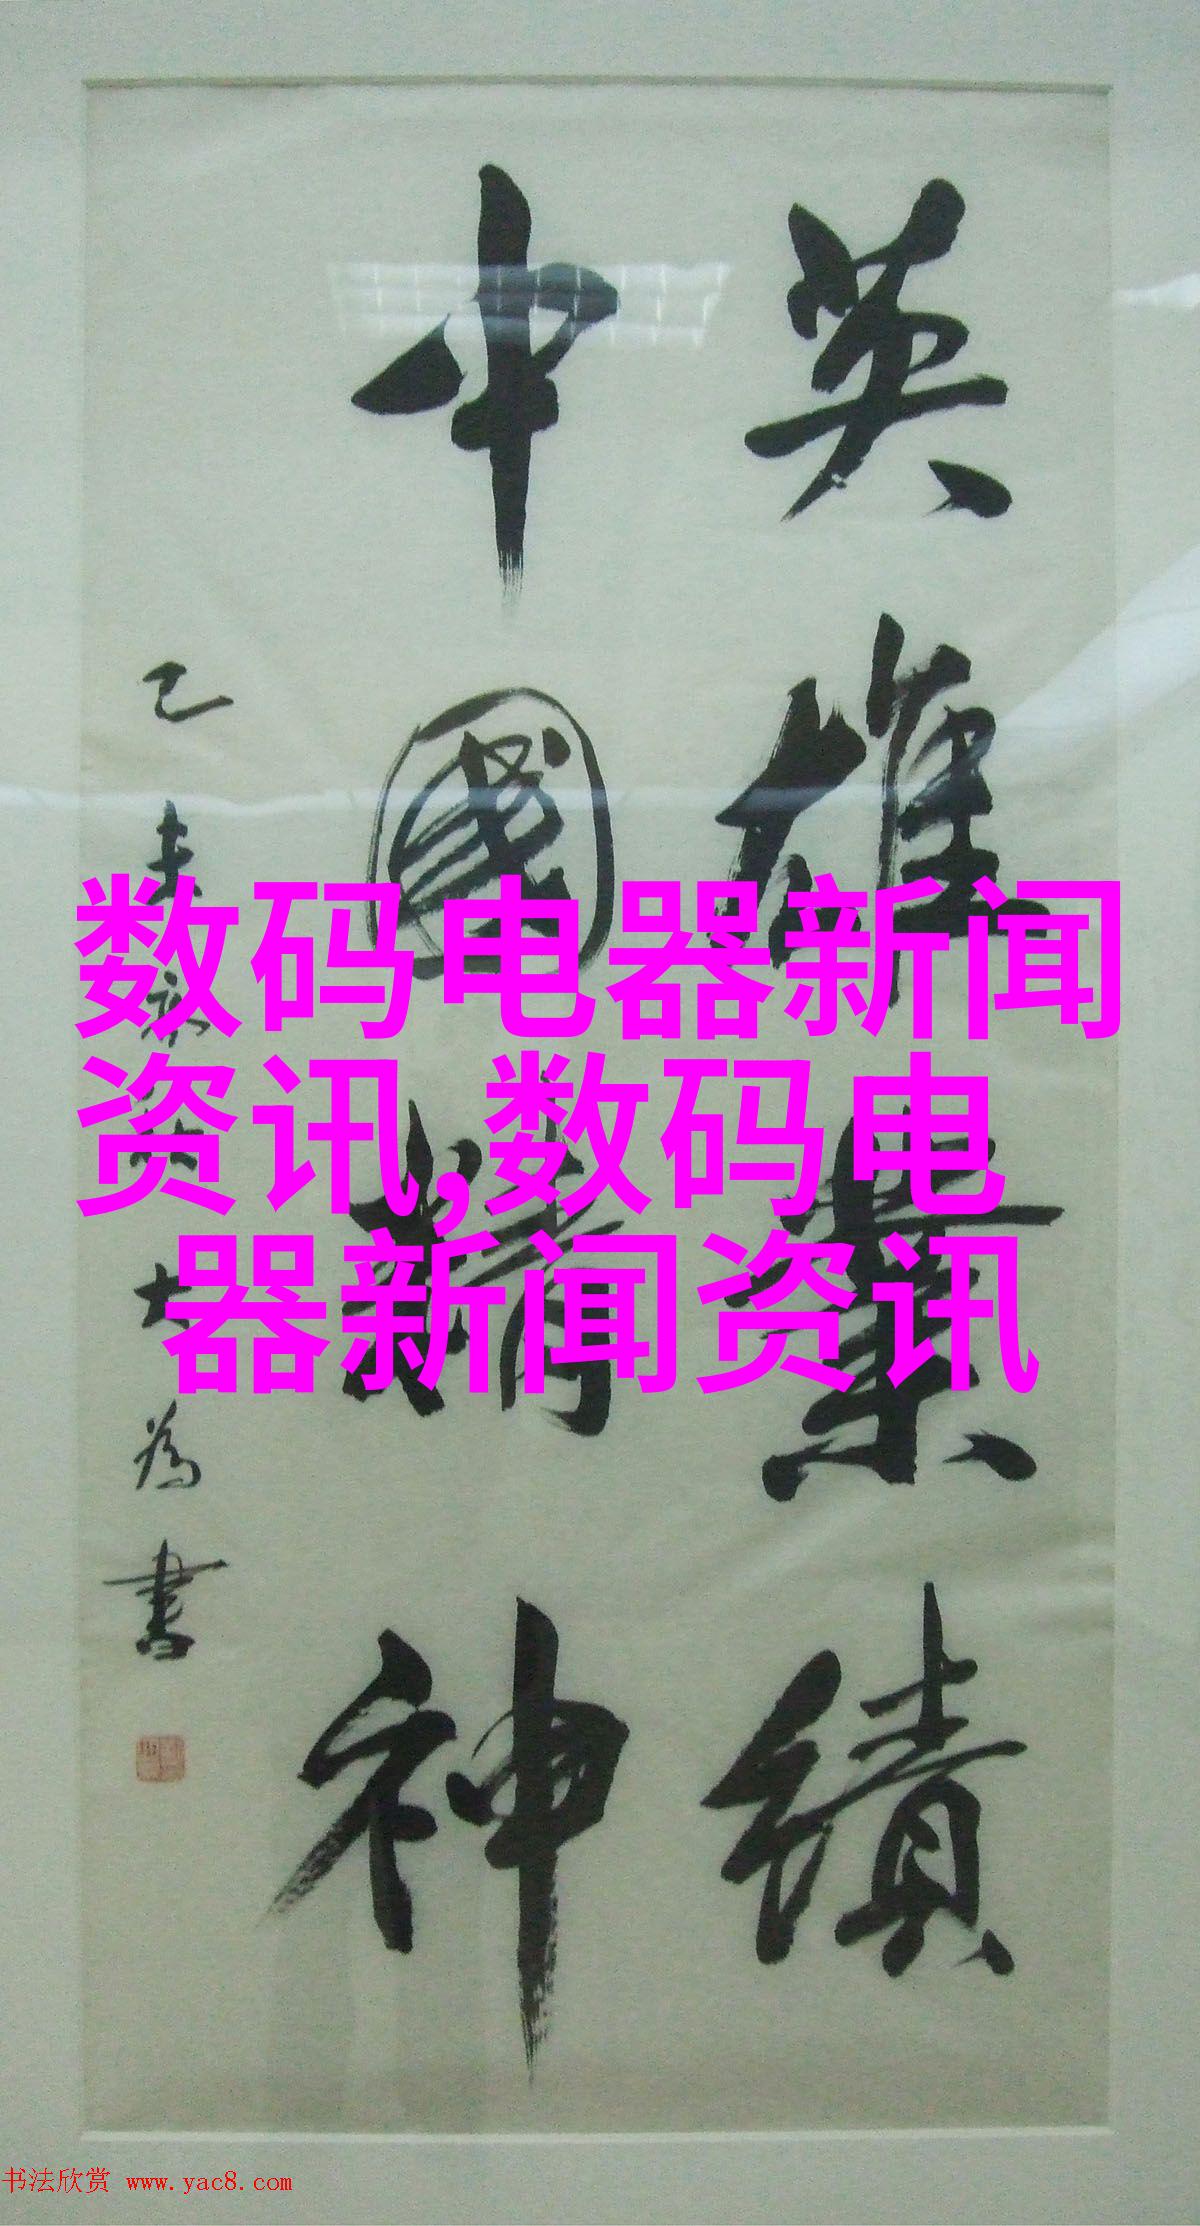 英雄業績
中國精神
乙未
大為書
数码电器新闻
资讯,数码电
器新闻资讯
书法欣赏 www.yac8.com